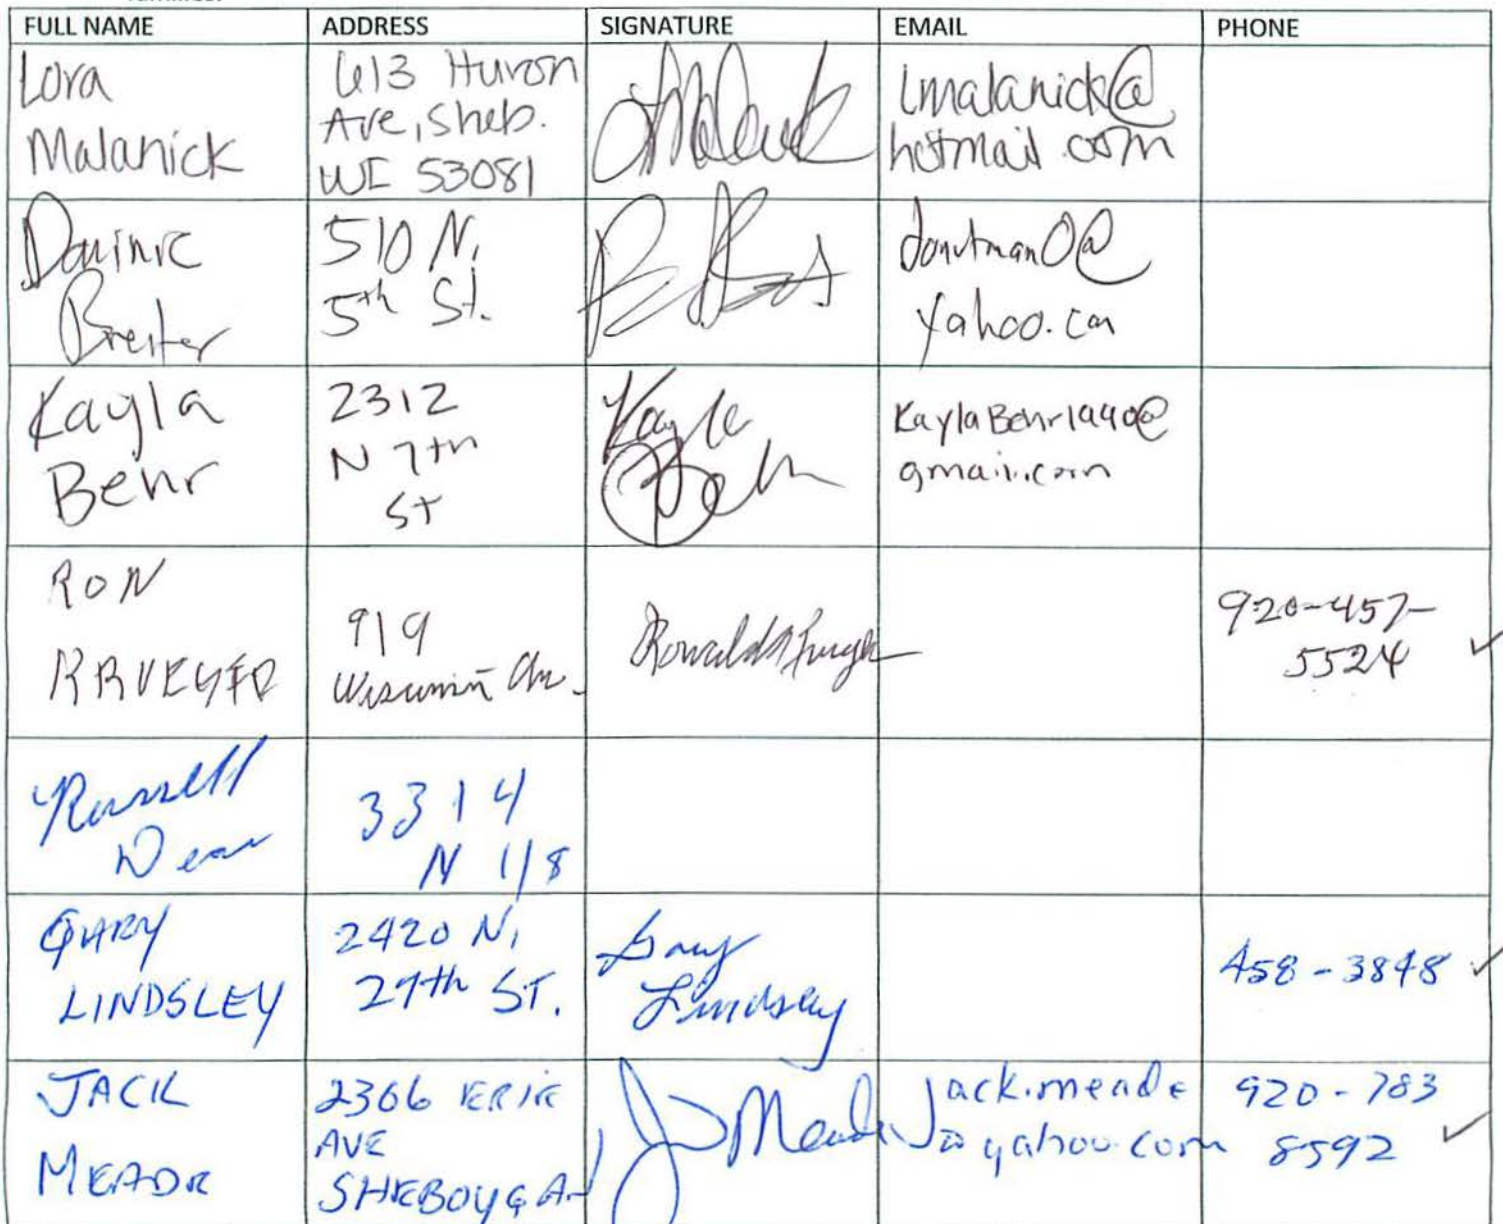 FULL NAME ADDRESS SIGNATURE EMAIL PHONE
Lora
Malanick
613 Huron
Ave, Sheb.
WI 53081
lmalanick@
hotmail.com
Dominic
Breiter
510 N.
5th St.
donutman0@
yahoo.com
Kayla
Behr
2312
N 7th
St
Kayla
Behr
KaylaBehr1990@
gmail.com
RON
919
Wisconsin Av.
920-457-
5524
Russell
Dean
3314
N
GARY
LINDSLEY
2420 N.
27th ST.
Gary
Lindsley
458-3848
JACK
MEADE
2306 ERIE
AVE
SHEBOYGAN
J Meade
Jack.meade
@yahoo.com
920-783
8592